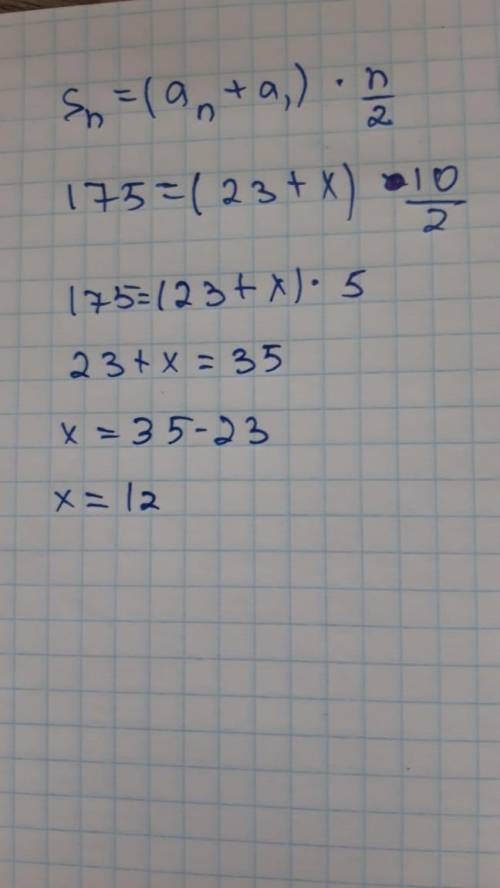 Sₙ = (aₙ + a₁) · n/2
175 = (23 + x) · 10/2
175 = (23 + x) · 5
23 + x = 35
x = 35 - 23
x = 12